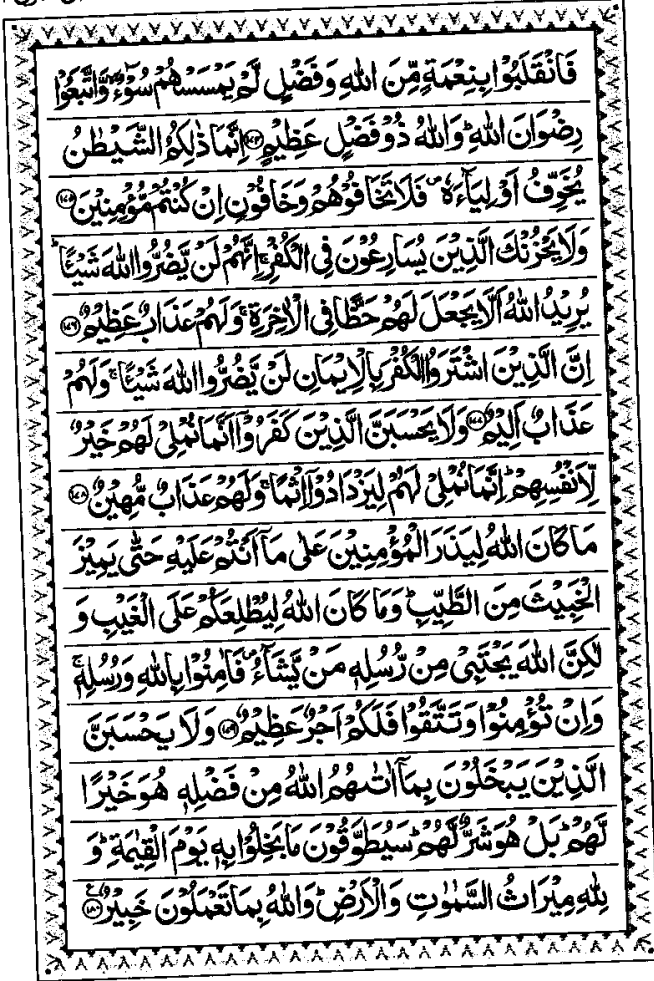 فَانْقَلَبُوْا بِنِعْمَةٍ مِّنَ اللّٰهِ وَفَضْلٍ لَّمْ يَمْسَسْهُمْ سُوْٓءٌ ۙ وَّاتَّبَعُوْا
رِضْوَانَ اللّٰهِ ؕ وَاللّٰهُ ذُوْ فَضْلٍ عَظِيْمٍ ﴿۱۷۴﴾ اِنَّمَا ذٰلِكُمُ الشَّيْطٰنُ
يُخَوِّفُ اَوْلِيَآءَهٗ ۪ فَلَا تَخَافُوْهُمْ وَخَافُوْنِ اِنْ كُنْتُمْ مُّؤْمِنِيْنَ ﴿۱۷۵﴾
وَلَا يَحْزُنْكَ الَّذِيْنَ يُسَارِعُوْنَ فِی الْكُفْرِ ۚ اِنَّهُمْ لَنْ يَّضُرُّوا اللّٰهَ شَيْـًٔا ؕ
يُرِيْدُ اللّٰهُ اَلَّا يَجْعَلَ لَهُمْ حَظًّا فِی الْاٰخِرَةِ ۚ وَلَهُمْ عَذَابٌ عَظِيْمٌ ﴿۱۷۶﴾
اِنَّ الَّذِيْنَ اشْتَرَوُا الْكُفْرَ بِالْاِيْمَانِ لَنْ يَّضُرُّوا اللّٰهَ شَيْـًٔا ۚ وَلَهُمْ
عَذَابٌ اَلِيْمٌ ﴿۱۷۷﴾ وَلَا يَحْسَبَنَّ الَّذِيْنَ كَفَرُوْۤا اَنَّمَا نُمْلِیْ لَهُمْ خَيْرٌ
لِّاَنْفُسِهِمْ ؕ اِنَّمَا نُمْلِیْ لَهُمْ لِيَزْدَادُوْۤا اِثْمًا ۚ وَلَهُمْ عَذَابٌ مُّهِيْنٌ ﴿۱۷۸﴾
مَا كَانَ اللّٰهُ لِيَذَرَ الْمُؤْمِنِيْنَ عَلٰی مَاۤ اَنْتُمْ عَلَيْهِ حَتّٰی يَمِيْزَ
الْخَبِيْثَ مِنَ الطَّيِّبِ ؕ وَمَا كَانَ اللّٰهُ لِيُطْلِعَكُمْ عَلَی الْغَيْبِ وَ
لٰكِنَّ اللّٰهَ يَجْتَبِیْ مِنْ رُّسُلِهٖ مَنْ يَّشَآءُ ۪ فَاٰمِنُوْا بِاللّٰهِ وَرُسُلِهٖ ۚ
وَاِنْ تُؤْمِنُوْا وَتَتَّقُوْا فَلَكُمْ اَجْرٌ عَظِيْمٌ ﴿۱۷۹﴾ وَلَا يَحْسَبَنَّ
الَّذِيْنَ يَبْخَلُوْنَ بِمَاۤ اٰتٰىهُمُ اللّٰهُ مِنْ فَضْلِهٖ هُوَ خَيْرًا
لَّهُمْ ؕ بَلْ هُوَ شَرٌّ لَّهُمْ ؕ سَيُطَوَّقُوْنَ مَا بَخِلُوْا بِهٖ يَوْمَ الْقِيٰمَةِ ؕ وَ
لِلّٰهِ مِيْرَاثُ السَّمٰوٰتِ وَالْاَرْضِ ؕ وَاللّٰهُ بِمَا تَعْمَلُوْنَ خَبِيْرٌ ﴿۱۸۰﴾